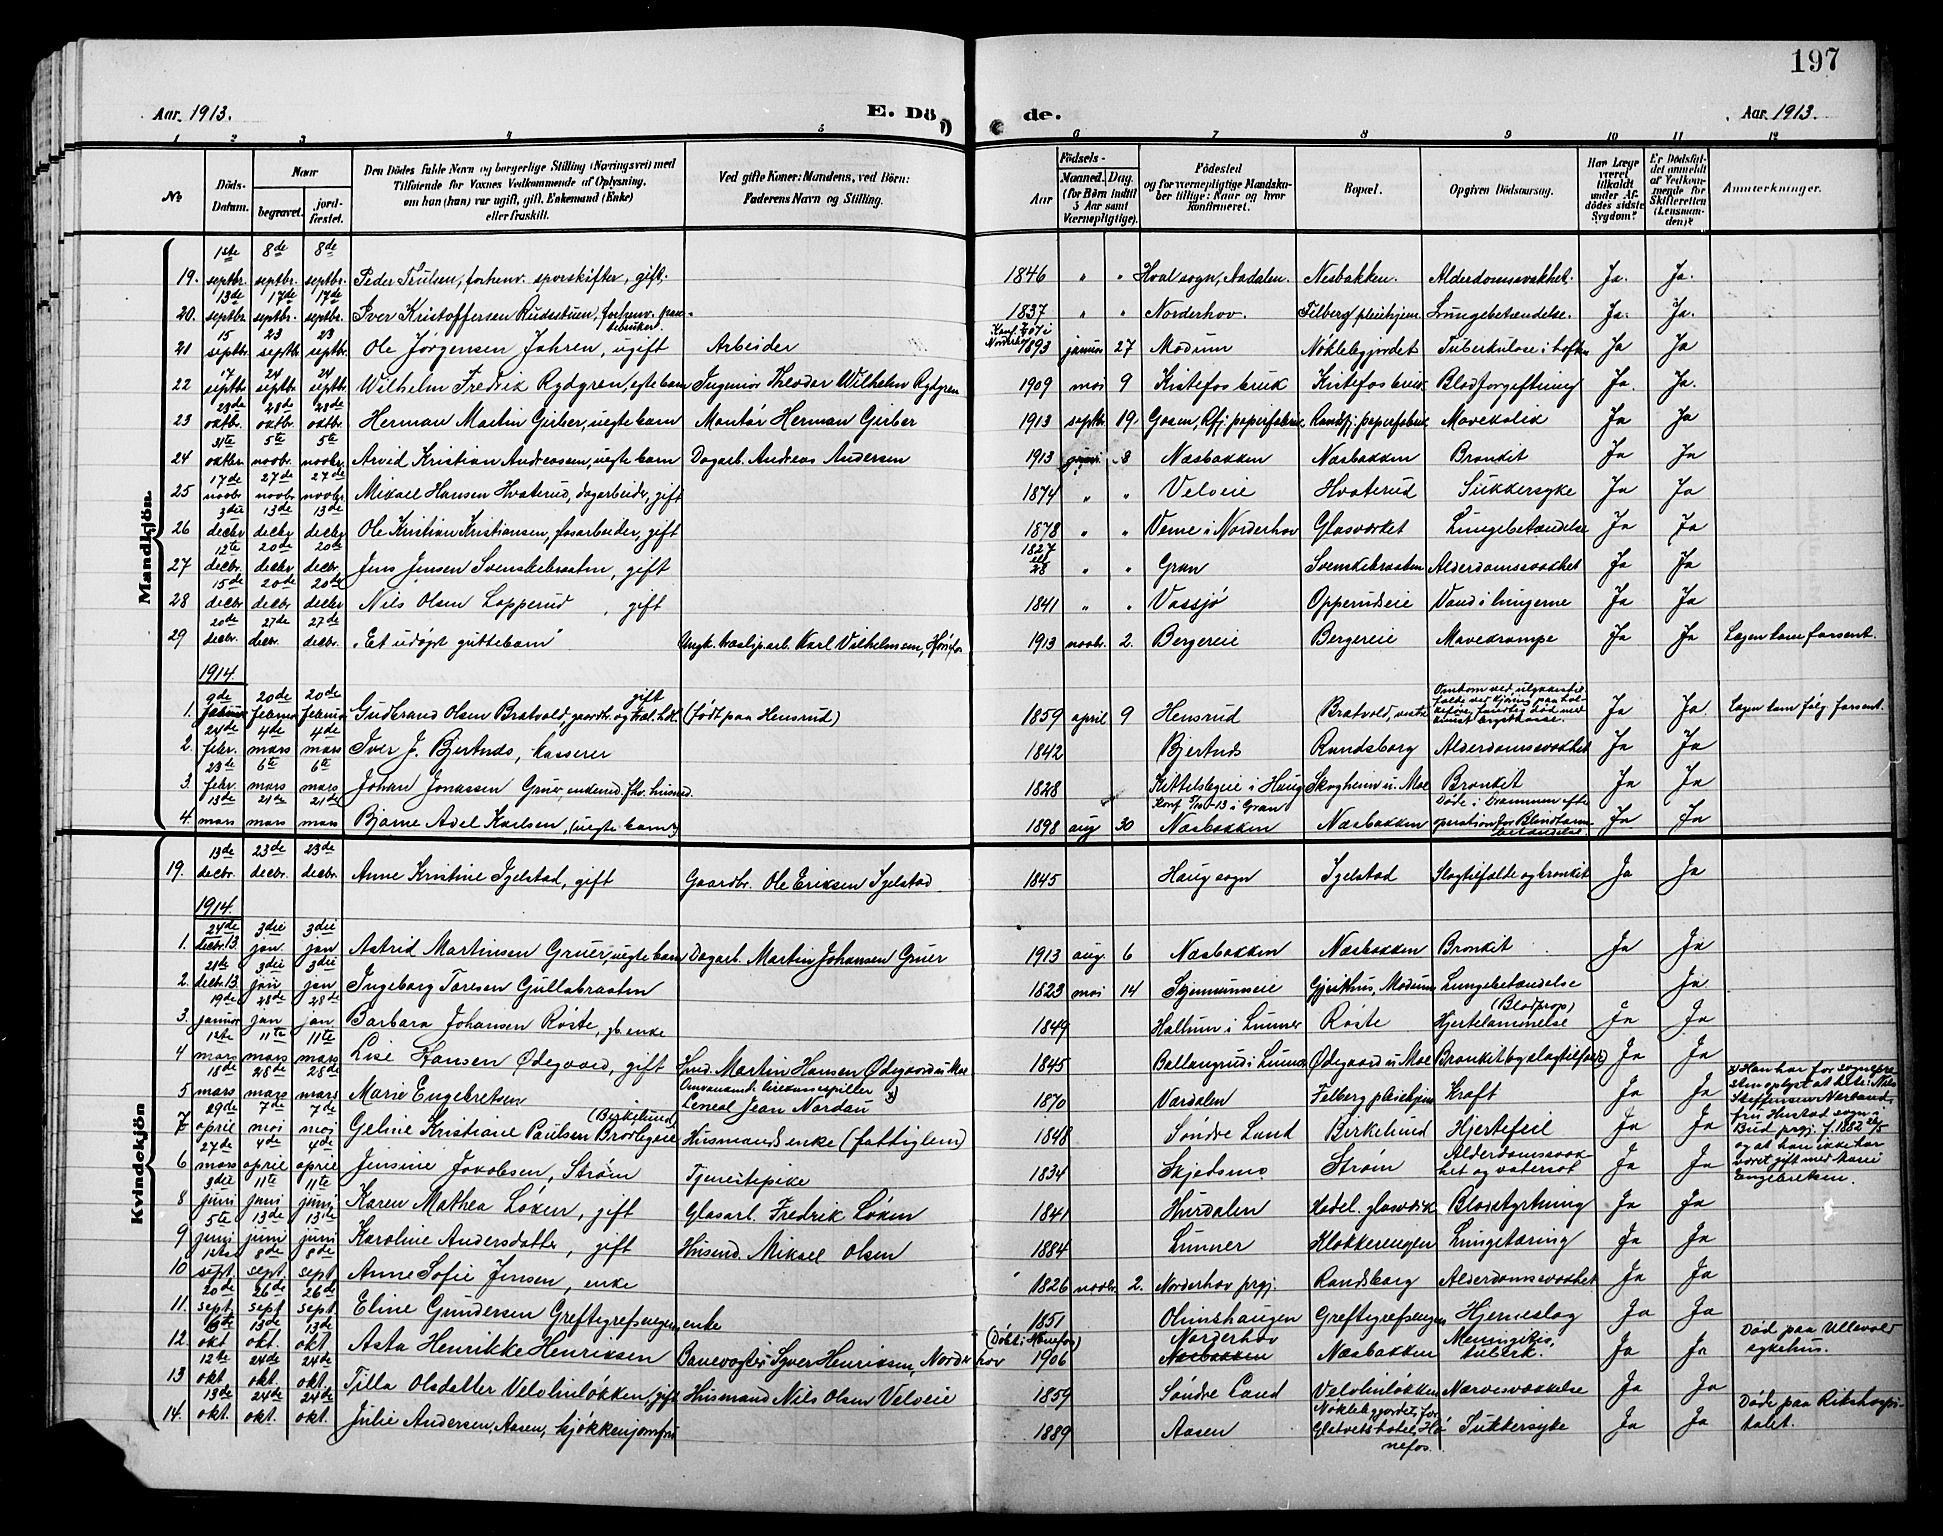 197
Aar 1913. E. Dö de. Aar 1913.
1 2 3 4 5 6 7 8 9 10 11 12
No. Döds-Datum. Naar begravet. jordfæstet. Den Dödes fulde Navn og borgerlige Stilling (Næringsvei) med Tilföiende for Voxnes Vedkommende af Oplysning, om han (hun) var ugift, gift, Enkemand (Enke) eller fraskilt. Ved gifte Koner: Mandens, ved Börn: Faderens Navn og Stilling. Födsels- Aar Maaned. Dag. (for Börn indtil 5 Aar samt Værnepligtige). Födested og for værnepligtige Mandskaber tillige: Naar og hvor konfirmeret. Bopæl. Opgiven Dödsaarsag. Har Læge været tilkaldt under Afdödes sidste Sygdom? Er Dödsfaldet anmeldt af Vedkommende for Skifteretten (Lensmanden)? Anmærkninger.
Mandkjön.
19. 1ste septbr. 8de septbr. 8de septbr. Peder Trulsen, forhenv. sporskifter, gift. 1846 " " Hval sogn, Aadalen. Nesbakken. Alderdomssvakhet. Ja. Ja.
20. 13de septbr 17de septbr. 17de septbr. Iver Kristoffersen Rudsstuen, forhenv. 1837 " " Norderhov. Felberg pleiehjem. Lungebetændelse. Ja. Ja.
21 15 septbr 23 septbr 23 septbr Ole Jörgensen Jahren, ugift Arbeider Konf. i Norderhov 1893 januar 27 Modum Nöklebygjordet Tuberkulose i hoften Ja Ja
22 17 septbr 24 septbr 24 septbr Wilhelm Fredrik Rydgren, egte barn Ingeniör Theodor Wilhelm Rydgren 1909 mai 9 Kistefos bruk Kistefos bruk Blodforgiftning Ja. Ja.
23 23de oktbr. 28de oktbr. 28de oktbr. Herman Martin Girber, uegte barn Montör Herman Girber 1913 septbr 19. Gasen, Rfj. papirfabrik Randsfj. papirfabrik Mavekolik Ja Ja
24 31te oktbr. 5te novbr. 5te novbr. Arvid Kristian Andreassen, uegte barn Dagarb. Andreas Andersen 1913 8 Næsbakken Næsbakken Bronkit Ja Ja
25 17de novbr 27de novbr. 27de novbr. Mikael Hansen Hvaterud, dagarbeider, gift 1874 " " Velveie Hvaterud Sukkersyke Ja Ja
26 3die decbr 13de decbr 13de decbr Ole Kristian Kristiansen, fosarbeider, gift 1878 " " Veme i Norderhov Glasværket Lungebetændelse Ja Ja
27 12te decbr. 20de decbr. 20de decbr. Jens Jensen Svenskebraaten, gift 1827 el 28 " " Gran Svenskebraaten Alderdomssvakhet Ja Ja
28 15de decbr 20de decbr. 20de decbr Nils Olsen Lopperud, gift 1841 " " Vassjö Opperudseie Vand i lungerne Ja Ja
29 20de decbr. 27de decbr. 27de decbr. "Et udöpt guttebarn" Ungk. træsliparb. Karl Vilhelmsen, Hönefos 1913 novbr. 2. Bergereie Bergereie Mavekrampe Ja Ja Lægen kom forsent.
1914.
1. 9de februar 20de februar 20de februar Gudbrand Olsen Bratvold, gaardbr. og træl.hdl. gift (födt paa Hensrud) 1859 april 9 Hensrud Bratvold, vestre Omkom ved ulykkestilfælde ved kjöring Ja Ja. Lægen kom fölg. forsent.
2. 24de febr. 4de mars 4de mars Iver J. Bjertnæs, kasserer 1842 Bjertnæs Randsborg Alderdomssvakhet Ja Ja
3. 23de febr. 6te mars 6te mars Johan Jonassen Gruer, enkemd. fhv. husmd. 1828 Kittelsbyeie i Haug Skogheim u. Moe Bronkit Ja Ja
4. 13de mars 21de mars 21de mars Bjarne Axel Karlsen, (uegte barn) 1898 aug 30 Konf. 13 i Gran Næsbakken Næsbakken Döde i Drammen efter operation for Blindtarmbetændelse Ja Ja
Kvindekjön
19. 13de decbr. 23de decbr. 23de decbr. Anne Kristine Igelstad, gift Gaardbr. Ole Eriksen Igelstad 1845 Haug sogn Igelstad Slagtilfælde og bronkit Ja Ja
1914.
1. 24de decbr. 13. 3die jan. 3die jan Astrid Martinsen Gruer, uegte barn Dagarb. Martin Johansen Gruer 1913 aug. 6 Næsbakken Næsbakken Bronkit Ja Ja
2. 21de decbr. 13. 3die jan 3die jan Ingeborg Toresen Gullabraaten 1823 mai 14 Skjennumseie Gjerihus, Modum Lungebetændelse Ja
3. 19de januar 28de jan 28de jan. Barbara Johansen Röste, gb. enke 1849 Hallum i Lunner Röste (Blodprop) Hjertelammelse Ja Ja
4 1ste mars 11te mars 11te mars Lise Hansen Ödegaard, gift Smd. Martin Hansen Ödegaard u Moe 1845 Ballangrud i Lunner Ödegaard u Moe Bronkit og slagtilfæld Ja Ja
5 18de mars 28de mars 28de mars Marie Engebretsen Omvandrende lirekassespiller Leneal Jean Nordau x) 1870 Vardalen Felberg pleiehjem Kræft Ja Ja x) Han har for sognepresten oplyst at hete: Nils Steffensen Norland, fra Hustad sogn i Bud prgj. f. 1882 26/5 og at han ikke har været gift med Marie Engebretsen.
7 29de april 7de mai 7de mai Geline Kristiane Paulsen Brodlegeie (Birkelund) Husmands enke (fattiglem) 1848 Söndre Land Birkelund Hjertefeil Ja Ja
6 27de mars 4de april 4de april Jensine Jakobsen, Ström Tjenestepike 1834 Skjedsmo Ström Alderdomssvakhet og vatersot Ja Ja
8 3die juni 11te juni 11te juni Karen Mathea Löken, gift Glasarb. Fredrik Löken 1841 Hurdalen Hadel. glasværk Blodstyrtning Ja Ja
9 5te juni 13de juni 13de juni Karoline Andersdatter, gift Husmd. Mikael Olsen 1884 Lunner Klokkerengen Lungetæring Ja Ja
10 1ste sept. 8de sept. 8de sept Anne Sofie Jensen, enke 1826 novbr. 2. Norderhov prgj. Randsborg Alderdomssvakhet Ja Ja
11. 20de sept. 26de sept 26de sept. Eline Gundersen Greftegrefsengen enke 1851 Olimshaugen Greftegrefsengen Hjerneslag Ja Ja
12. 6te okt 13de okt. 13de okt Asta Henrikke Henriksen Banevogter Syver Henriksen, Norderhov (Döbt i Hönefos) 1906 Norderhov Næsbakken Næsbakken Meningitis, tuberk. Ja Ja Död paa Ullevold sykehus.
13 12te okt. 24de okt. 24de okt. Tilla Olsdatter Velohlinlökken, gift Husmand Nils Olsen Velveie 1859 Söndre Land Velohlinlökken Nærvesvækkelse Ja Ja
14. 13de okt. 24de okt. 24de okt. Julie Andersen, Aasen, kjökkenjomfru 1889 Aasen Nöklebygjordet, for Glatvets hotel, Hönefos. Sukkersyke Ja Ja Döde paa Rikshospitalet.